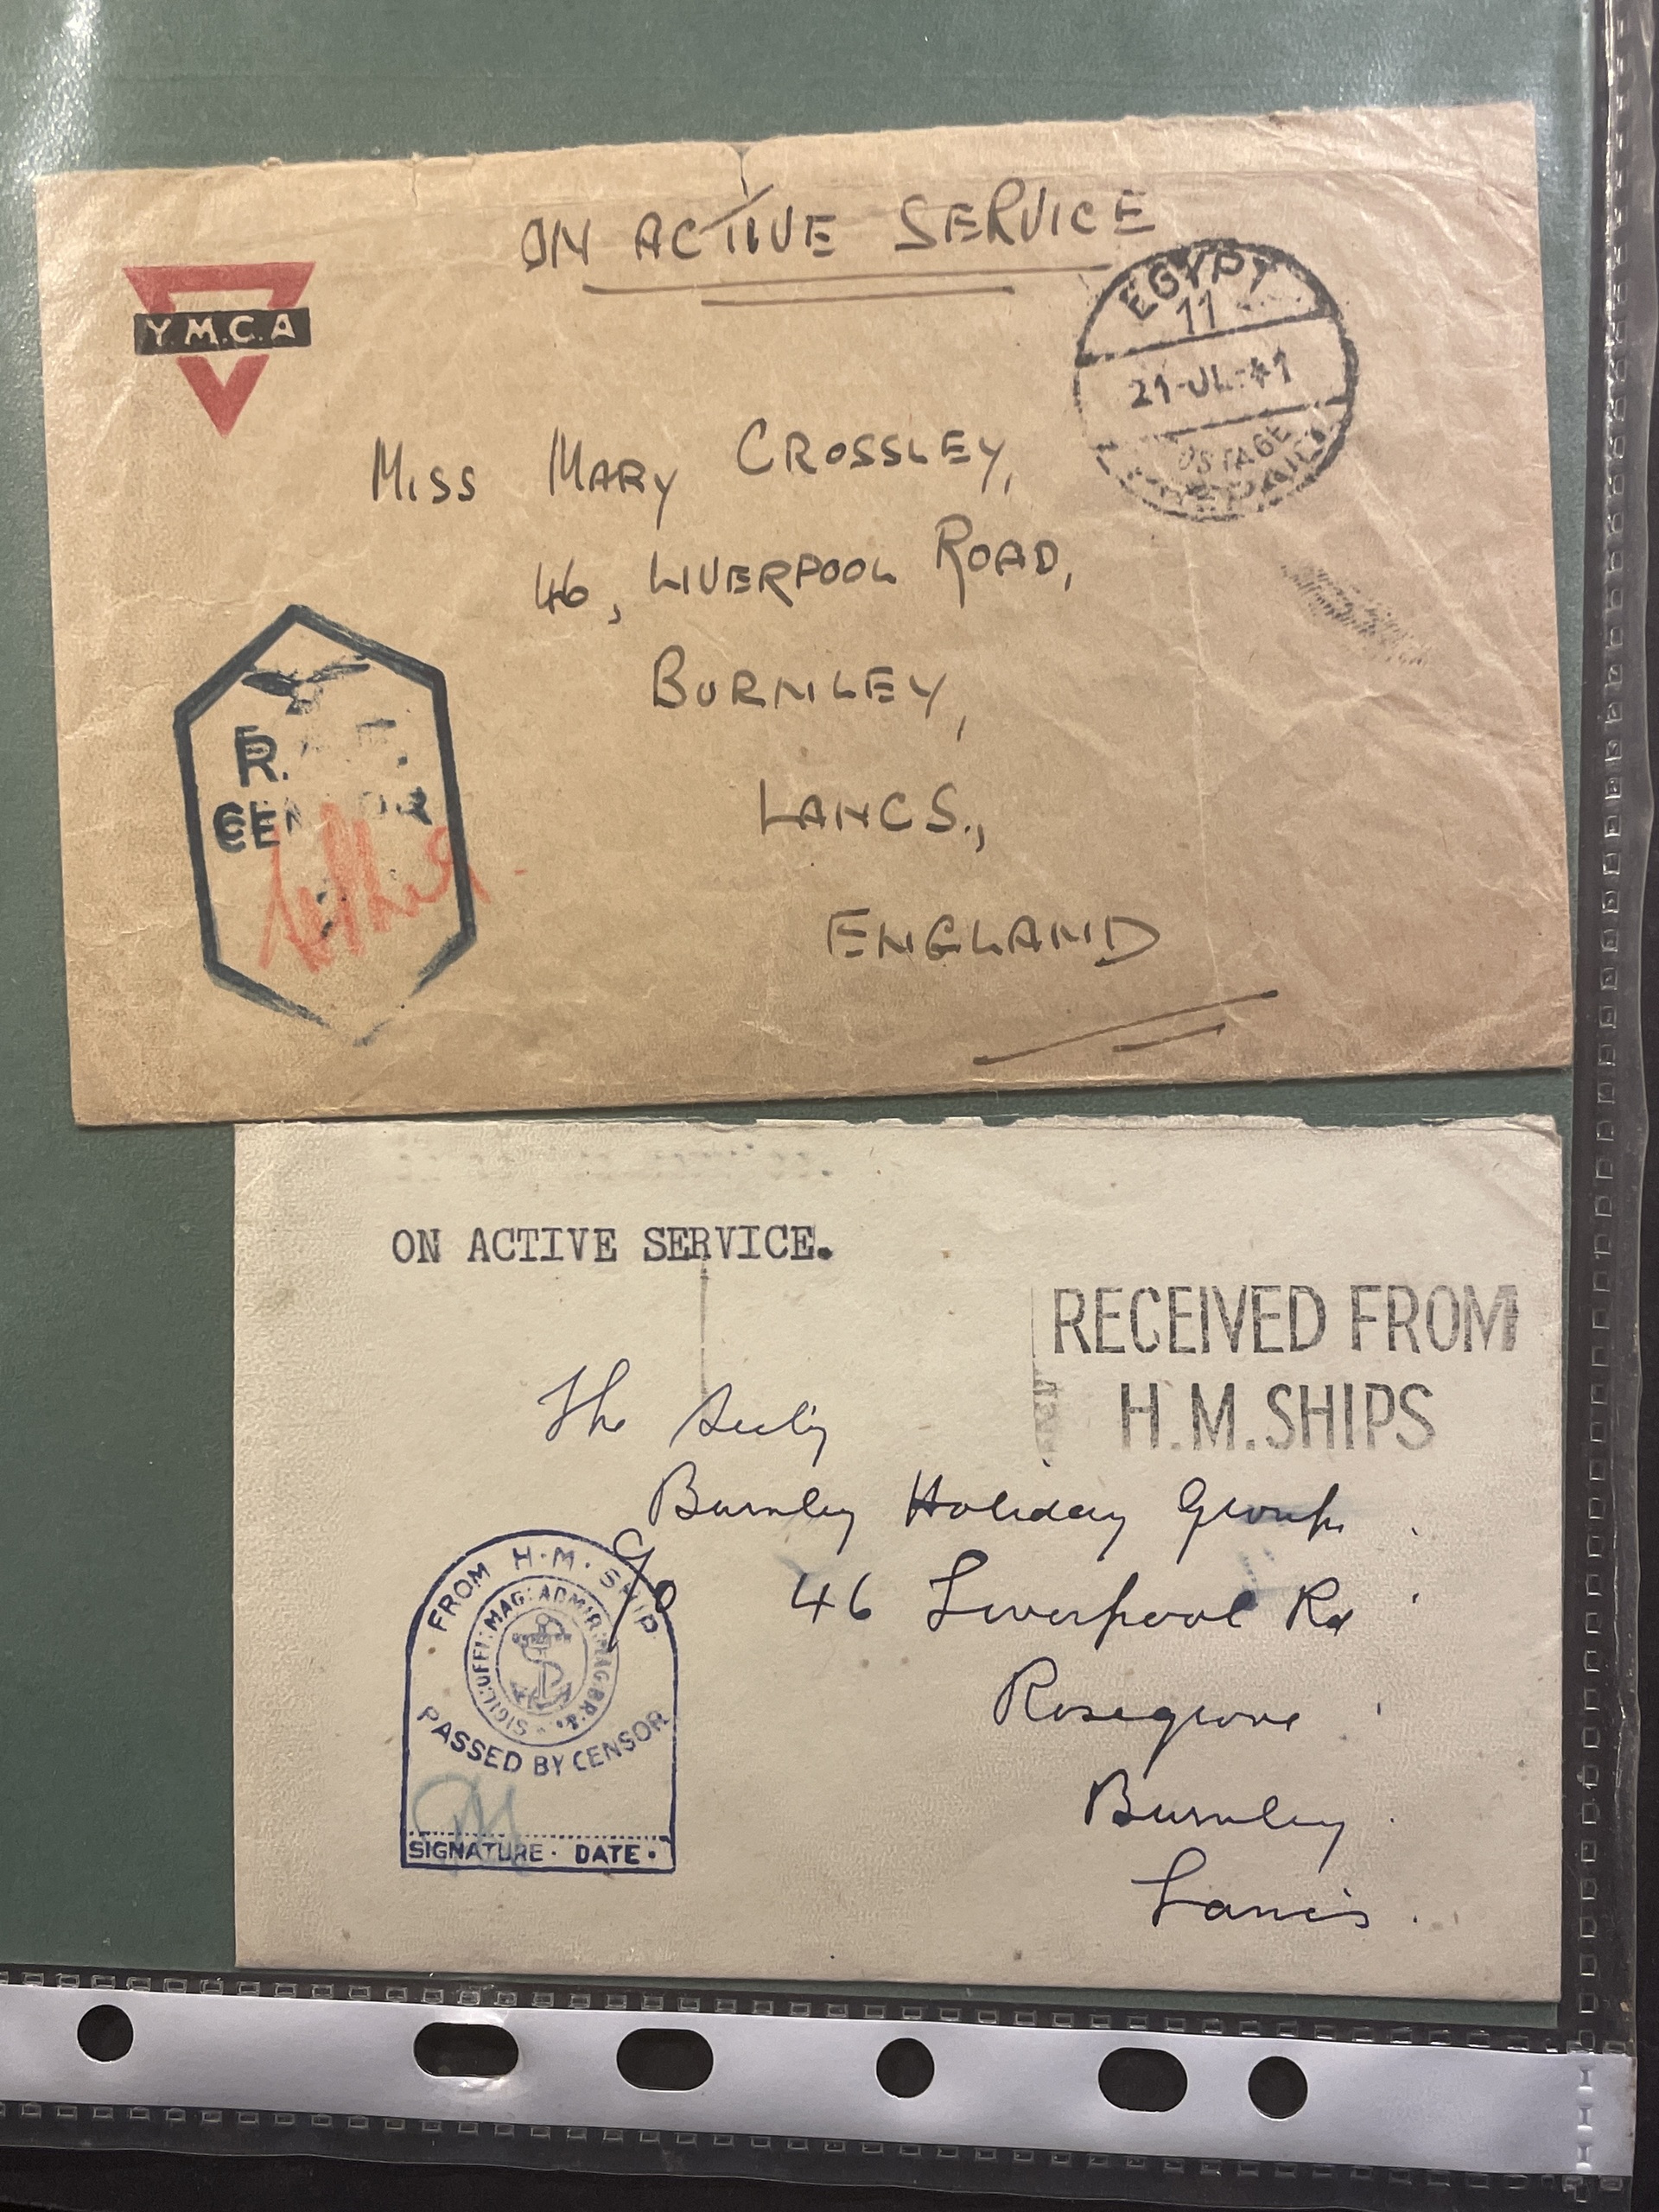 ON ACTIVE SERVICE
Y.M.C.A
EGYPT
11
21-JL-41
POSTAGE
PREPAID
MISS MARY CROSSLEY,
46, LIVERPOOL ROAD,
BURNLEY,
LANCS.,
ENGLAND
R.A.F.
CENSOR
ON ACTIVE SERVICE.
RECEIVED FROM
H.M. SHIPS
The Secty
Burnley Holiday Group
c/o 46 Liverpool Rd
Rosegrove
Burnley
Lancs.
FROM H.M. SHIP
SIGIL: OFFI: MAG: ADMIR: MAG: BR: &.
PASSED BY CENSOR
SIGNATURE. DATE.